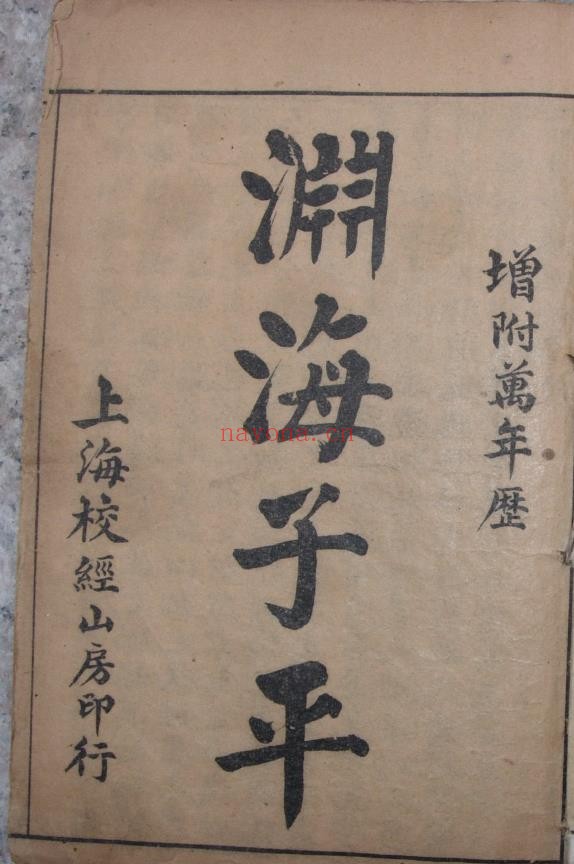 增附萬年歷
淵海子平
上海校經山房印行
nayona.cn